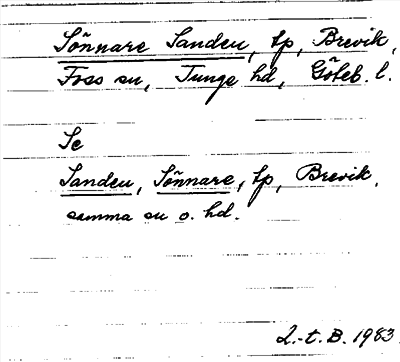 Sönnare Sanden, tp, Brevik,
Foss sn, Tunge hd, Göteb. l.
Se
Sanden, Sönnare, tp, Brevik,
samma sn o. hd.
L.-t. B. 1983.